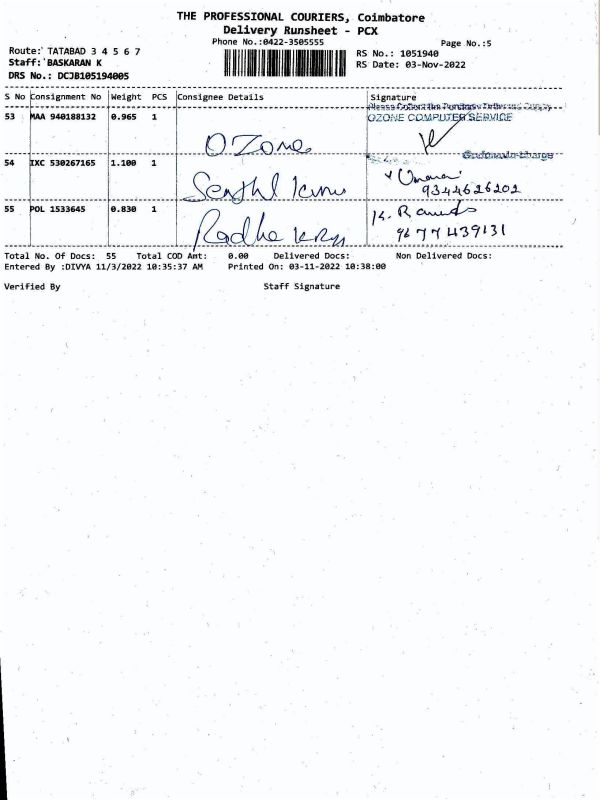 THE PROFESSIONAL COURIERS, Coimbatore
Delivery Runsheet - PCX
Phone No.:0422-3505555
Page No.:5
Route: TATABAD 3 4 5 6 7
Staff: BASKARAN K
DRS No.: DCJB105194005
RS No.: 1051940
RS Date: 03-Nov-2022
S No Consignment No Weight PCS Consignee Details Signature
53 MAA 940188132 0.965 1 OZone OZONE COMPUTER SERVICE
54 IXC 530267165 1.100 1 Senthil 9344626202
55 POL 1533645 0.830 1 Radha K. 9677439131
Total No. Of Docs: 55 Total COD Amt: 0.00 Delivered Docs: Non Delivered Docs:
Entered By :DIVYA 11/3/2022 10:35:37 AM Printed On: 03-11-2022 10:38:00
Verified By Staff Signature